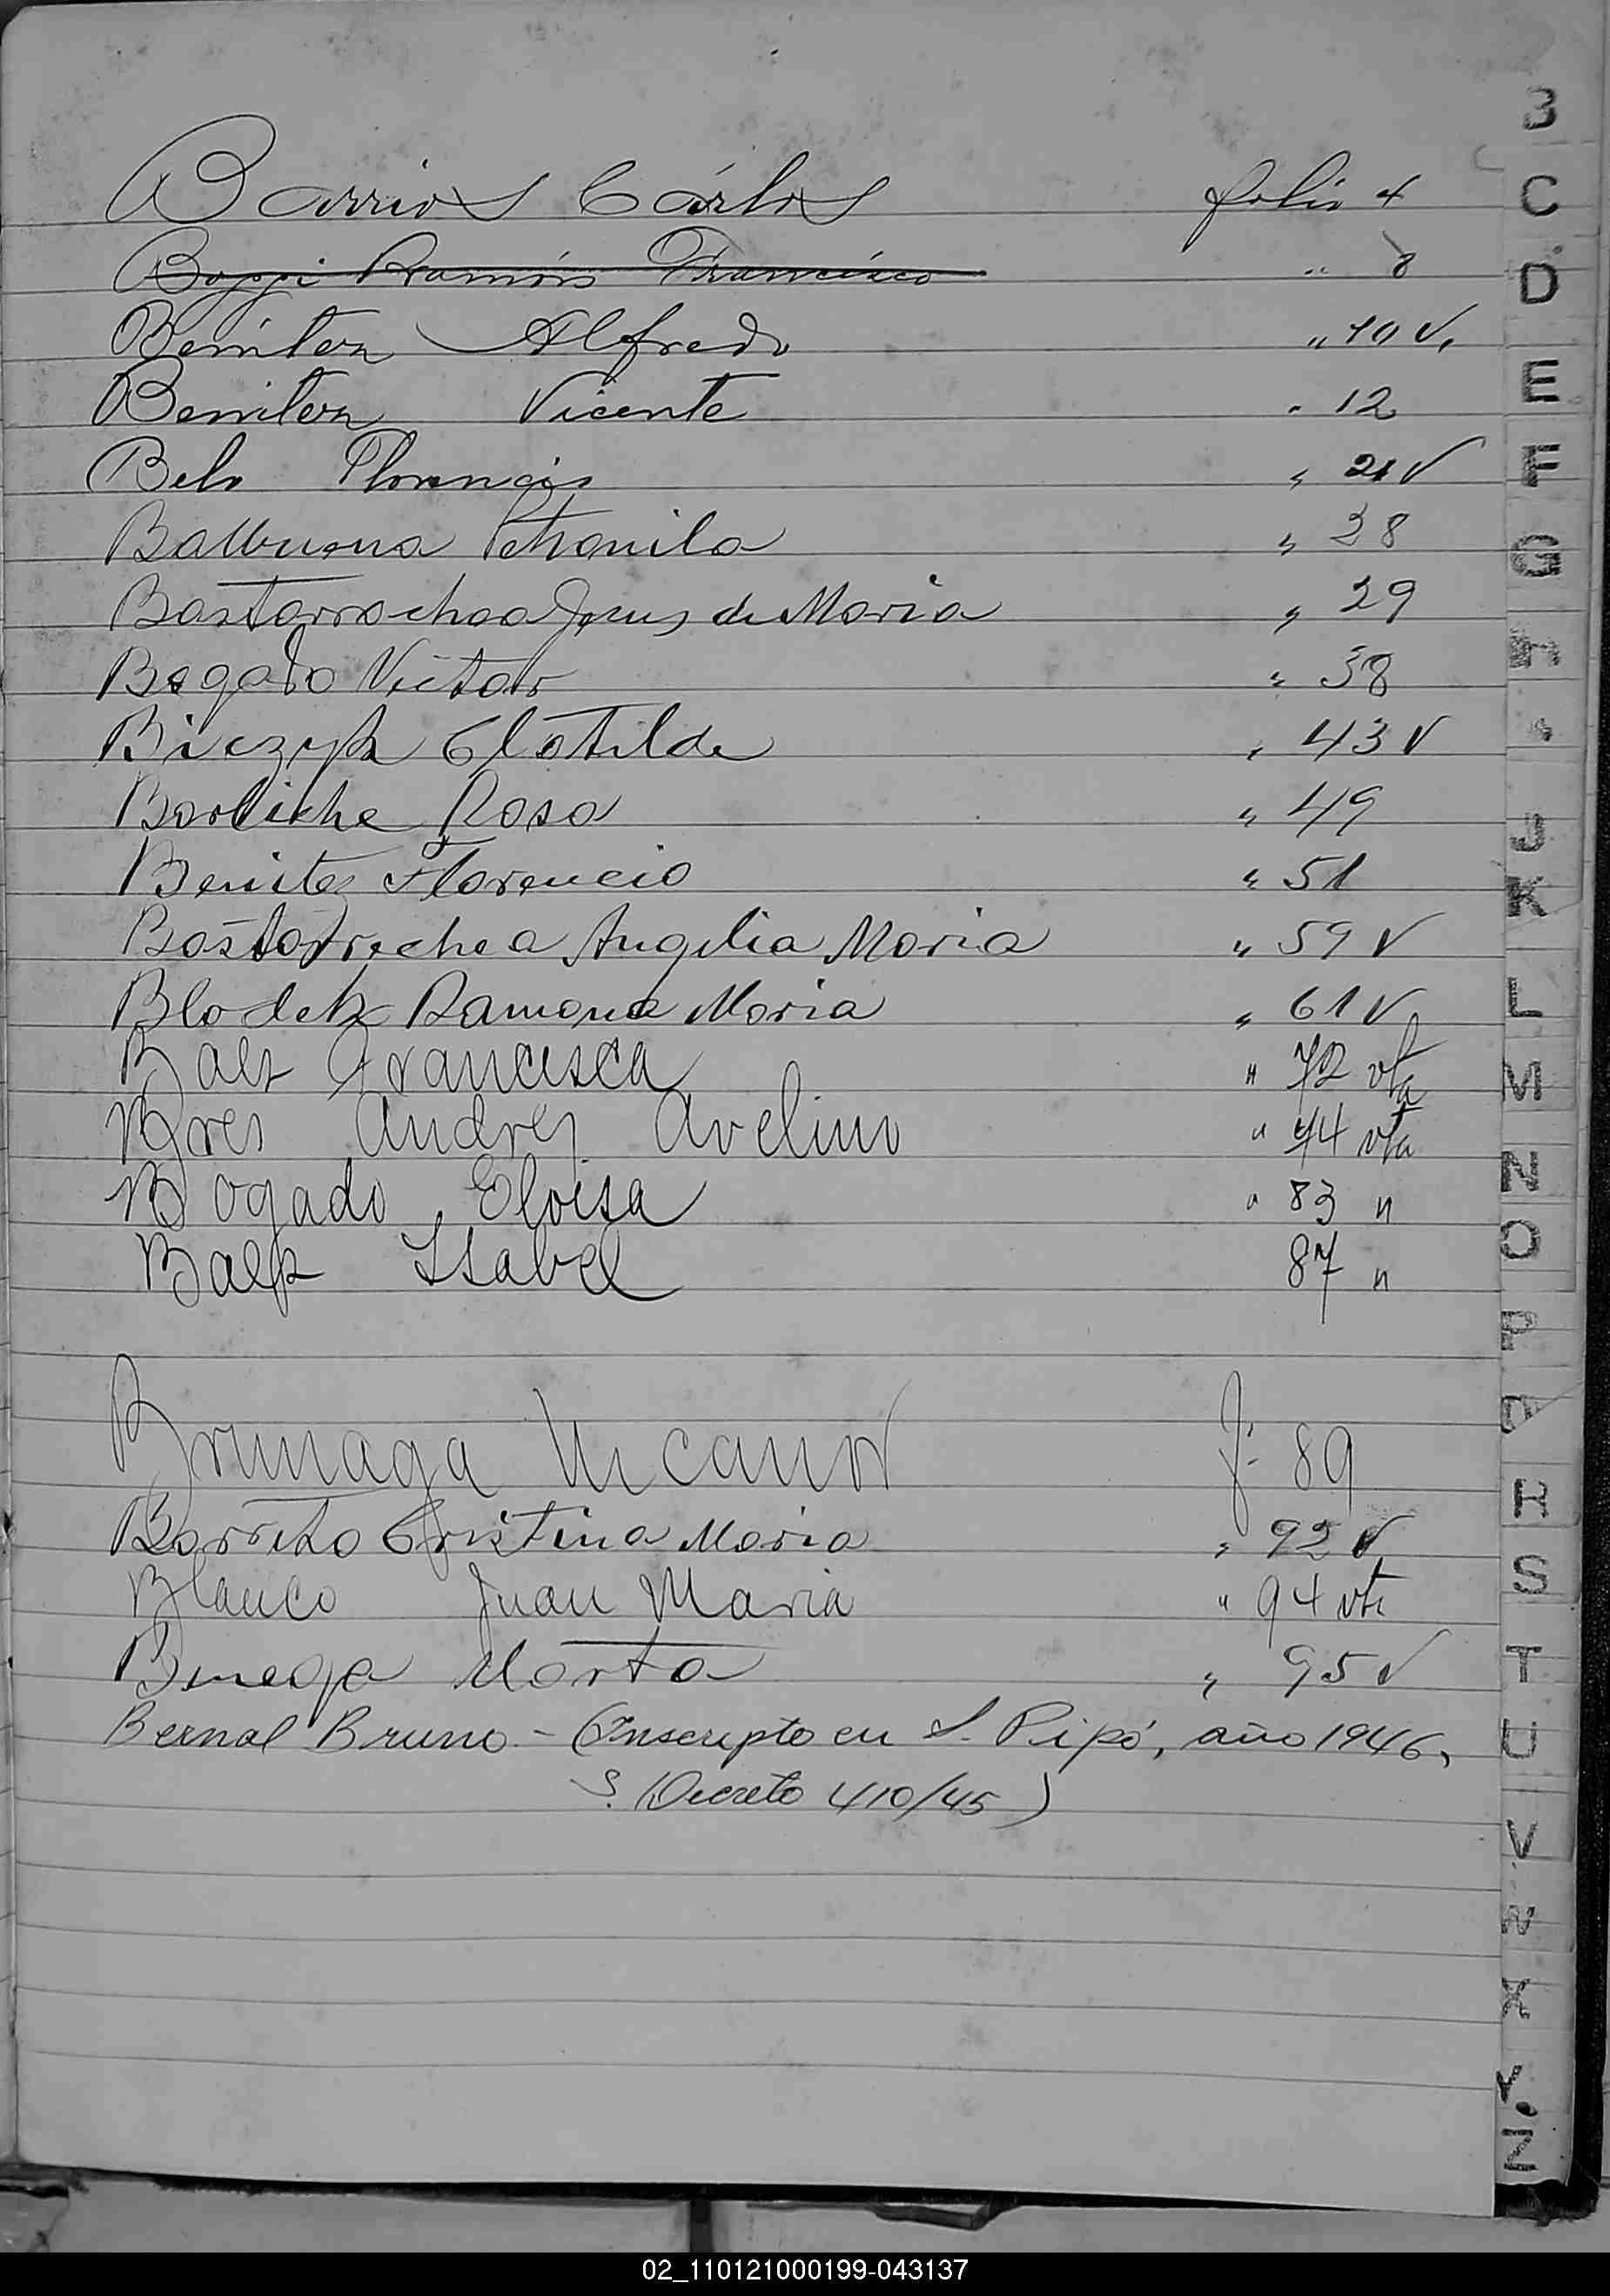 Barrios Cárlos folio 4
Boggi Ramón Francisco " 8
Benitez Alfredo " 10 v.
Benitez Vicente " 12
Belo Florencio " 21 v
Balbuena Petronila " 28
Bastarrachea Jesus de Maria " 29
Bogado Victor " 38
Biczyk Clotilde " 43 v
Barliche Rosa " 49
Benitez Florencio " 51
Bastarrechea Angelia Maria " 59 v
Blodek Ramona Maria " 61 v
Baez Francisca " 72 vta
Bres Andres Avelino " 74 vta
Bogado Eloisa " 83 "
Baez Isabel 87 "
Brunaga Nicanor f- 89
Barreto Cristina Maria " 92 v
Blanco Juan Maria " 94 vta
Marta " 95 v
Bernal Bruno - (Inscripto en S. Pipó, año 1946,
S. (Decreto 410/45)
B
C
D
E
F
G
H
J
K
L
M
N
O
P
Q
R
S
T
U
V
W
X
Y.
Z
02_110121000199-043137